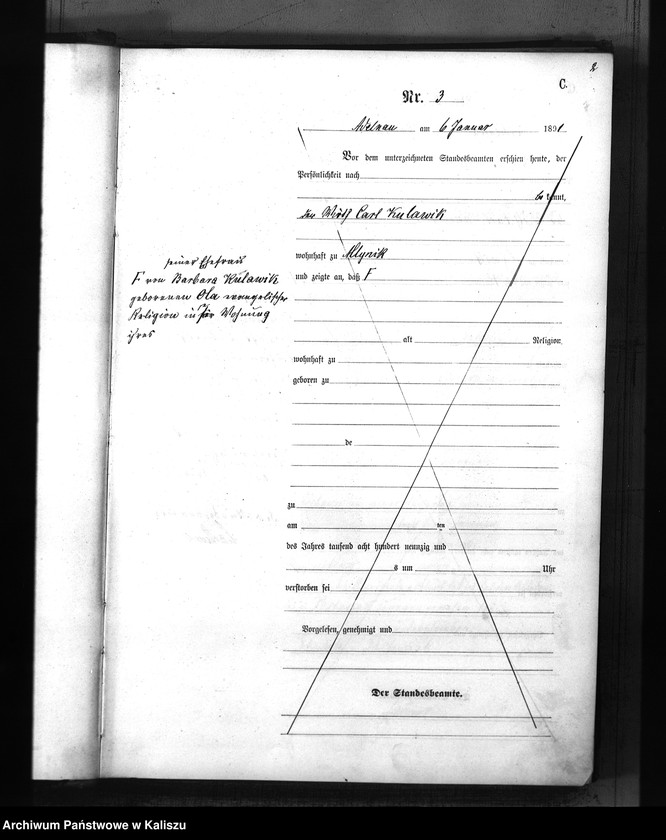 2
C.
Nr. 3
Adelnau am 6 Januar 1891
Vor dem unterzeichneten Standesbeamten erschien heute, der
Persönlichkeit nach
be kannt,
den Wirth Carl Kulawik
wohnhaft zu Mlynik
und zeigte an, daß F
seiner Ehefrau
F von Barbara Kulawik
geborenen Ola evangelischer
Religion in Wohnung
ihres
alt Religion
wohnhaft zu
geboren zu
de
zu
am ten
des Jahres tausend acht hundert neunzig und
s um Uhr
verstorben sei
Vorgelesen, genehmigt und
Der Standesbeamte.
Archiwum Państwowe w Kaliszu